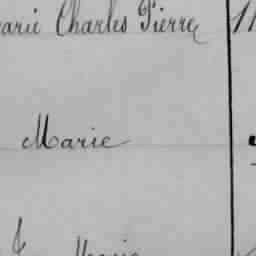 arie Charles Pierre
Marie